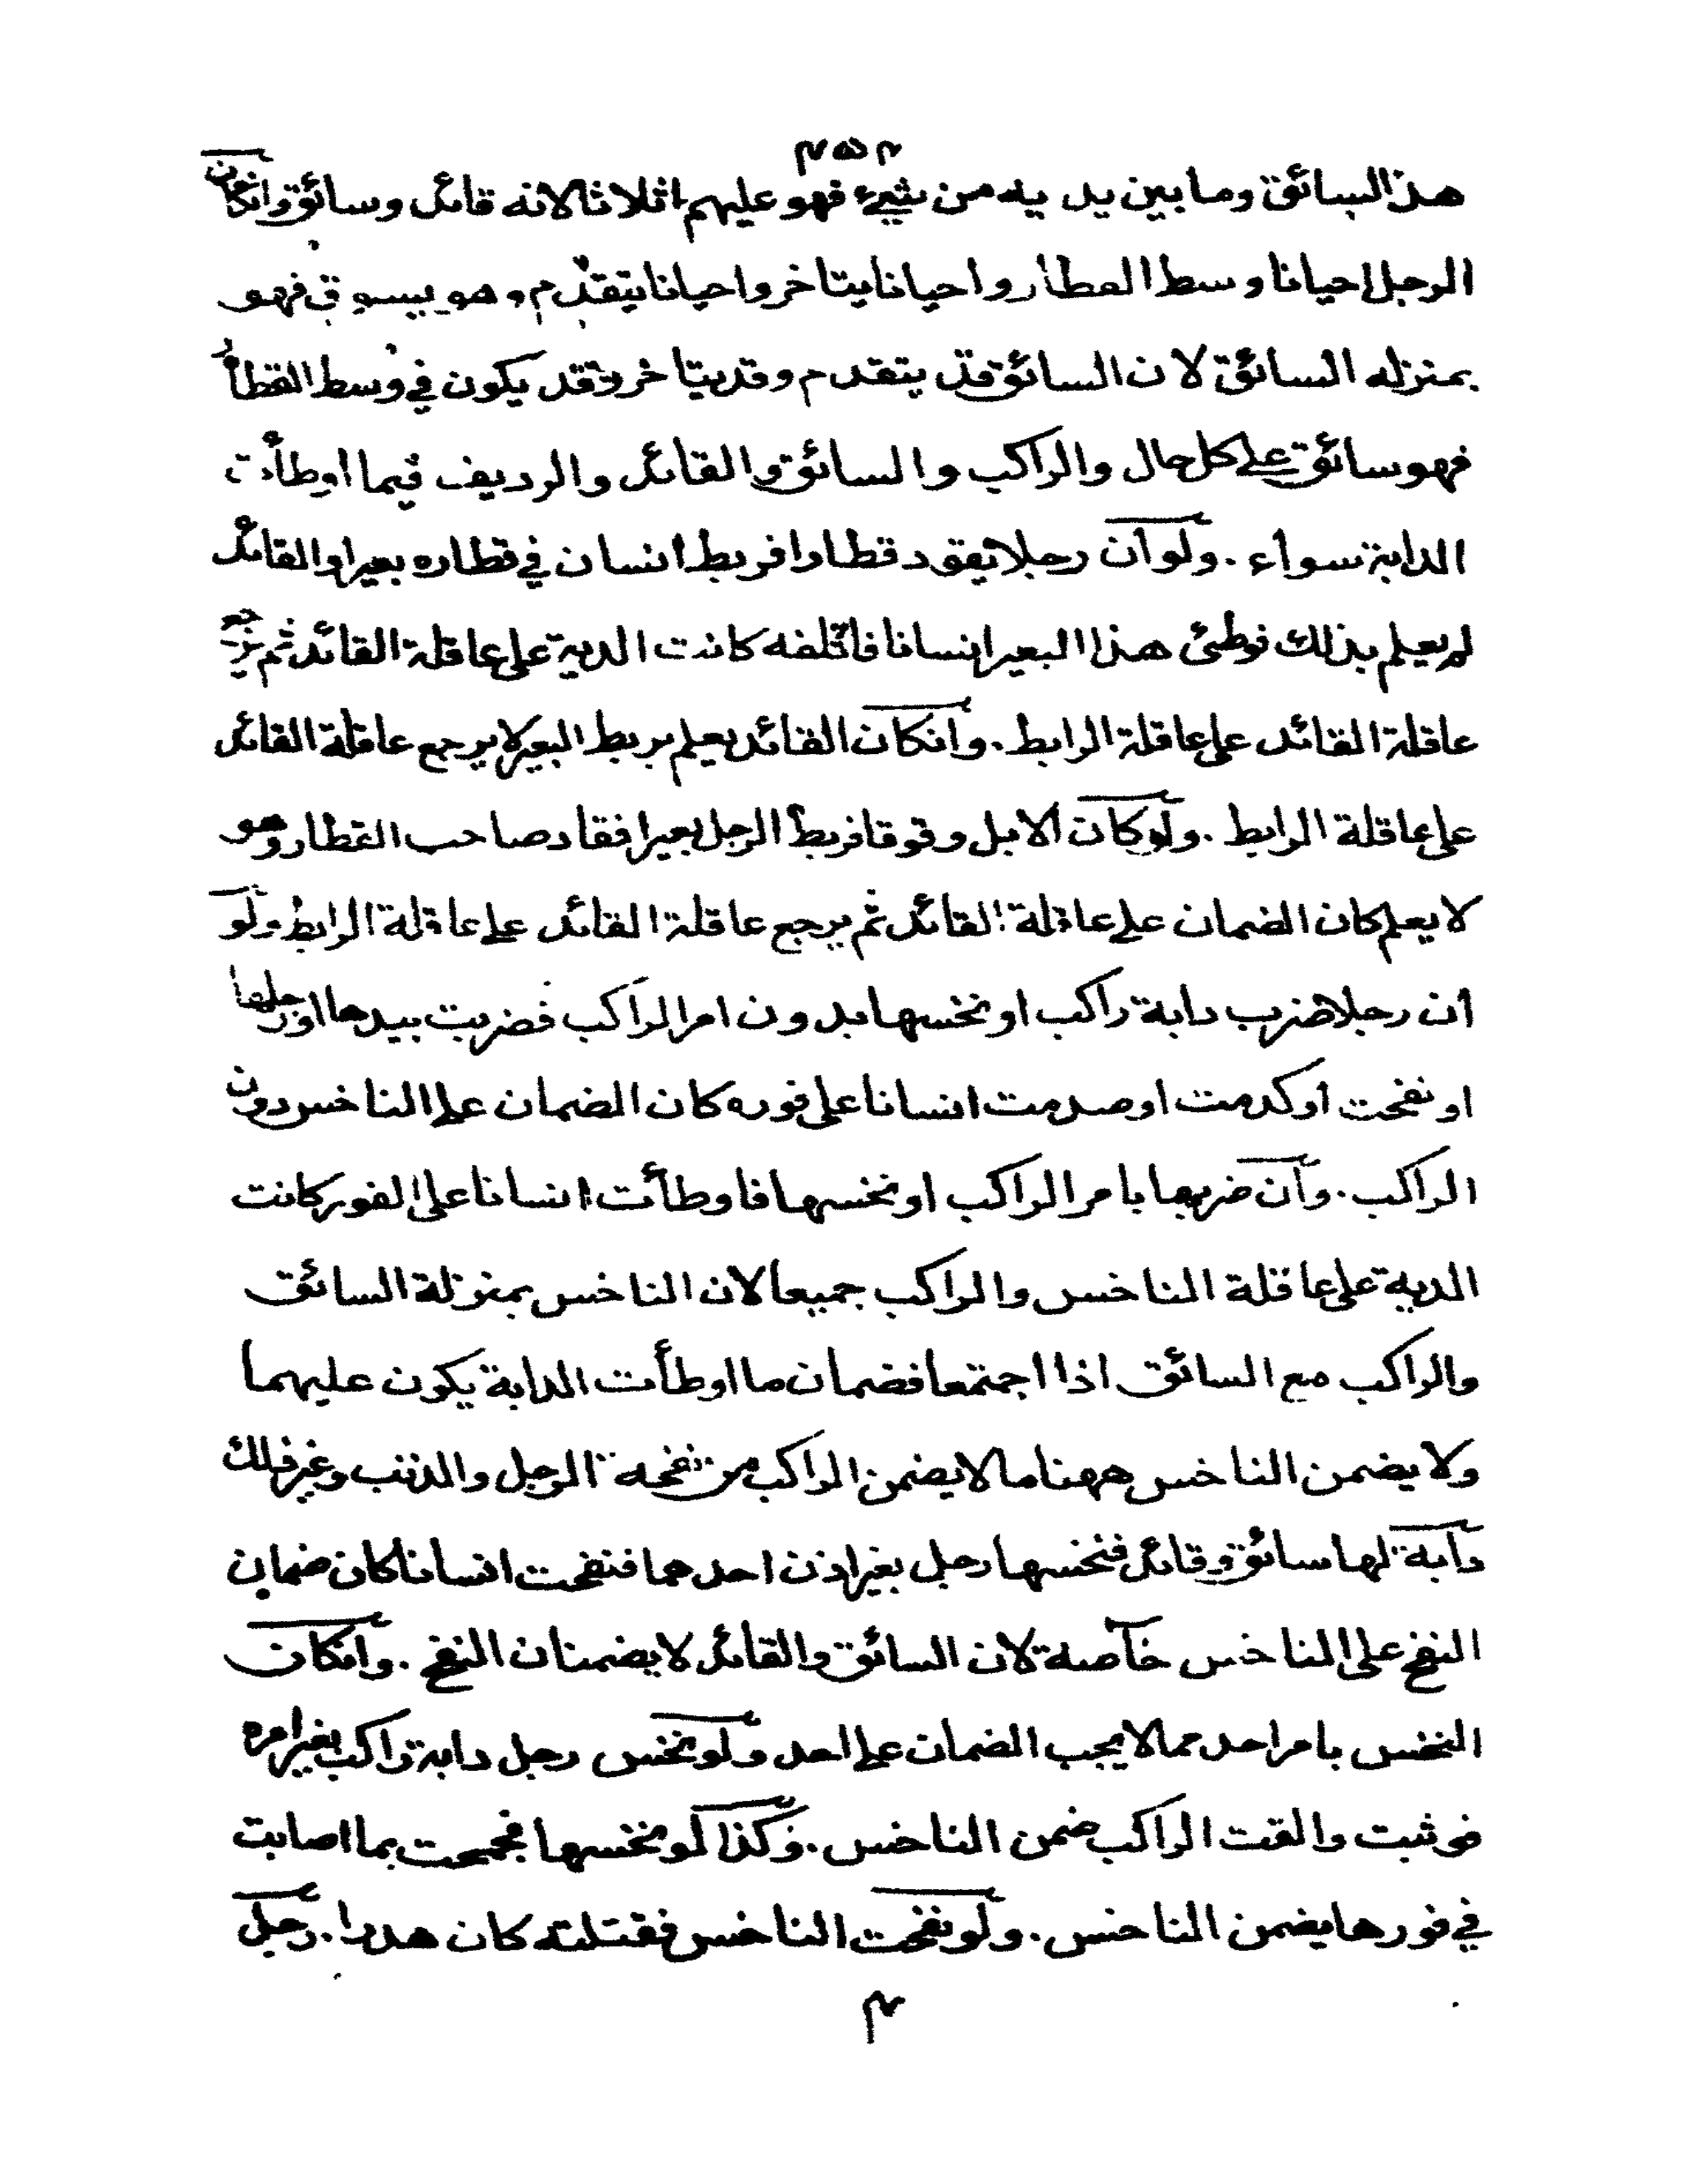 ٢٥٣
هذا السائق وما بين يديه من شيء فهو عليهم اثلاثا لانه قائد وسائق وانكان
الرجل احيانا وسط القطار واحيانا يتاخر واحيانا يتقدم وهو يسوق فهو
بمنزله السائق لان السائق قد يتقدم وقد يتاخر وقد يكون في وسط القطار
فهو سائق على كل حال والراكب والسائق والقائد والرديف فيما اوطأت
الدابة سواء . ولو أن رجلا يقود قطارا فربط انسان في قطاره بعيرا والقائد
لم يعلم بذلك فوطئ هذا البعير انسانا فاتلفه كانت الدية على عاقلة القائد ثم يرجع
عاقلة القائد على عاقلة الرابط . وانكان القائد يعلم بربط البعير لا يرجع عاقلة القائد
على عاقلة الرابط . ولو كان الابل وقوفا فربط الرجل بعيرا فقاد صاحب القطار وهو
لا يعلم كان الضمان على عاقلة القائد ثم يرجع عاقلة القائد على عاقلة الرابط ولو
ان رجلا ضرب دابة راكب او نخسها بدون امر الراكب فضربت بيدها او رجلها
او نفحت او كدمت او صدمت انسانا على فوره كان الضمان على الناخس دون
الراكب . وان ضربها بامر الراكب او نخسها فاوطأت انسانا على الفور كانت
الدية على عاقلة الناخس والراكب جميعا لان الناخس بمنزلة السائق
والراكب مع السائق اذا اجتمعا فضمان ما اوطأت الدابة يكون عليهما
ولا يضمن الناخس ههنا ما لا يضمن الراكب من نفحه الرجل والذنب وغير ذلك
دابة لها سائق وقائد فنخسها رجل بغير اذن احدهما فنفحت انسانا كان ضمان
النفح على الناخس خاصة لان السائق والقائد لا يضمنان النفح . وانكان
النخس بامر احدهما لا يجب الضمان على احد ولو نخس رجل دابة راكب بغير امره
فوثبت والقت الراكب ضمن الناخس . وكذا لو نخسها فجمحت بما اصابت
في فورها يضمن الناخس . ولو نفحت الناخس فقتلته كان هدرا . رجل